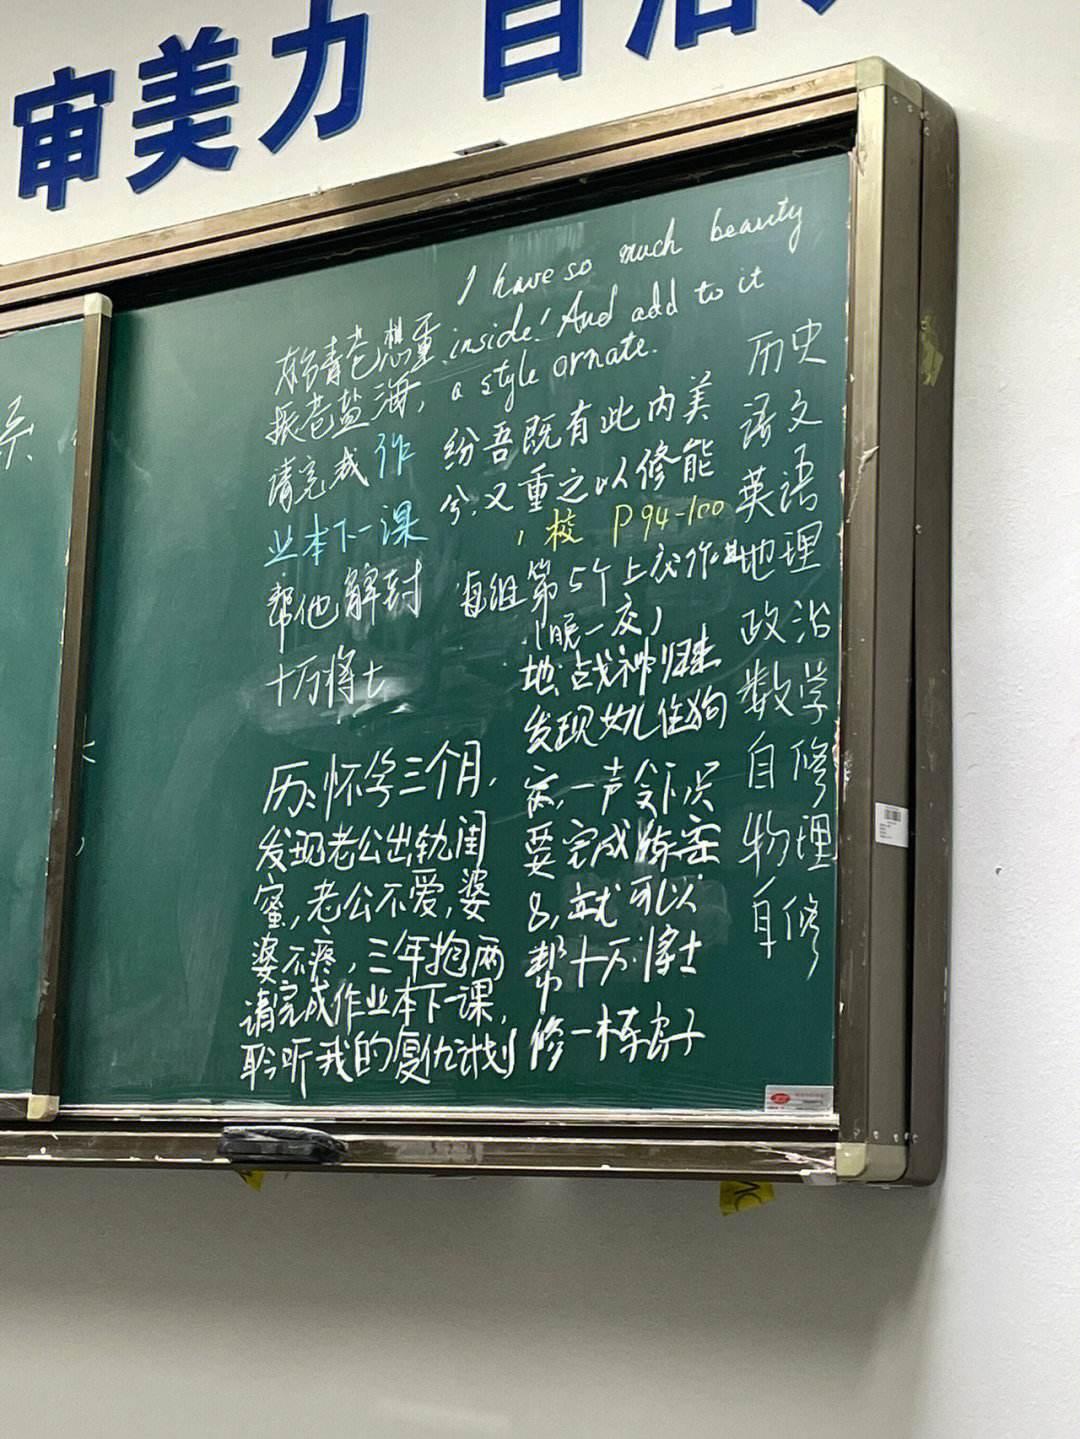 审美力 自治
I have so much beauty
inside! And add to it
a style ornate.
纷吾既有此内美
兮,又重之以修能
,校 P94-100
每组第5个上交作业
(晚一交)
地:战神归来
发现女儿住狗
窝,一声令下只
要完成练案
8,就可以
帮十万将士
修一栋房子
老想重
振老盐海,
请完成作
业本下一课
帮他解封
十万将士
历:怀孕三个月,
发现老公出轨闺
蜜,老公不爱,婆
婆不疼,三年抱两
请完成作业本下一课,
聆听我的复仇计划
历史
语文
英语
地理
政治
数学
自修
物理
自修